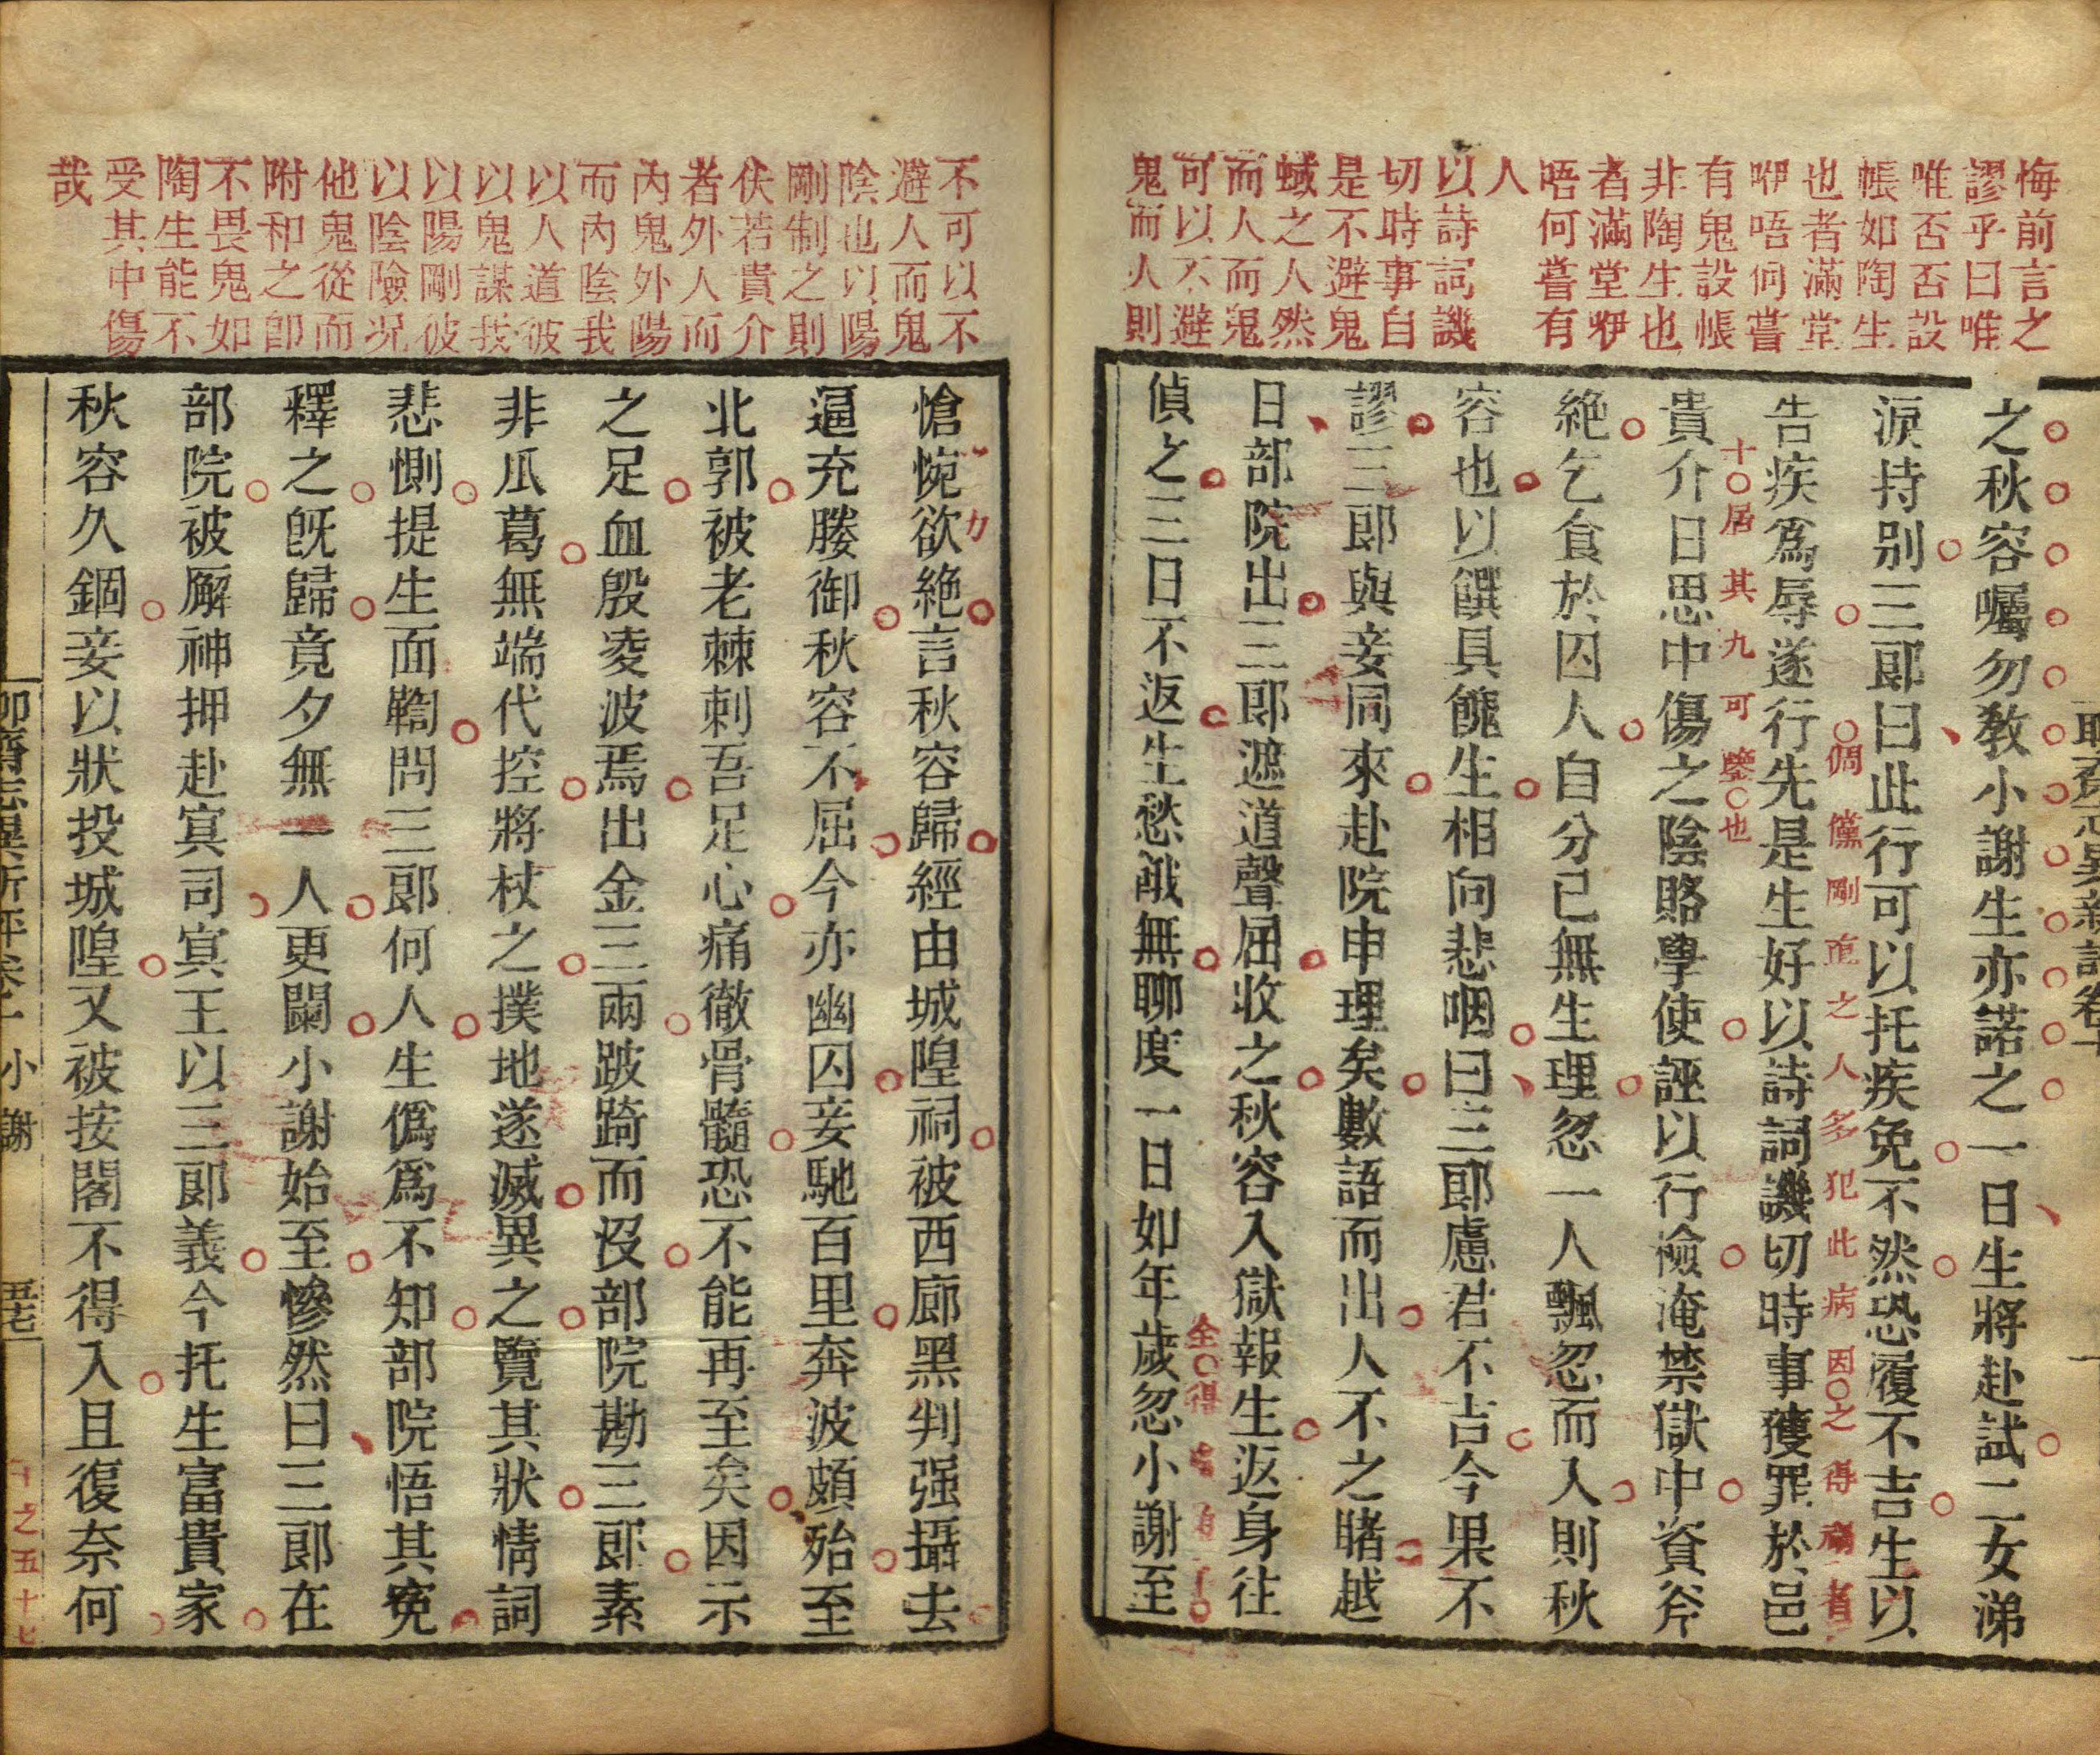 悔前言之
謬乎曰唯
唯否否設
帳如陶生
也者滿堂
咿唔何嘗
有鬼設帳
非陶生也
者滿堂咿
唔何嘗有
人
以詩詞譏
切時事自
是不避鬼
蜮之人然
而人而鬼
可以不避
鬼而人則
之秋容囑勿教小謝生亦諾之一日生將赴試二女涕
淚持别三郎曰此行可以托疾免不然恐履不吉生以
告疾爲辱遂行先是生好以詩詞譏切時事獲罪於邑
倜儻剛直之人多犯此病因之得禍者
貴介日思中傷之陰賂學使誣以行檢淹禁獄中資斧
十居其九可鑒也
絶乞食於囚人自分已無生理忽一人飄忽而入則秋
容也以饌具餽生相向悲咽曰三郎慮君不吉今果不
謬三郎與妾同來赴院申理矣數語而出人不之睹越
日部院出三郎遮道聲屈收之秋容入獄報生返身往
偵之三日不返生愁餓無聊度一日如年歲忽小謝至
聊齋志異新評卷十
不可以不
避人而鬼
陰也以陽
剛制之則
伏若貴介
者外人而
內鬼外陽
而內陰我
以人道彼
以鬼謀我
以陽剛彼
以陰險況
他鬼從而
附和之卽
不畏鬼如
陶生能不
受其中傷
哉
愴惋欲絶言秋容歸經由城隍祠被西廊黑判强攝去
逼充媵御秋容不屈今亦幽囚妾馳百里奔波頗殆至
北郭被老棘刺吾足心痛徹骨髓恐不能再至矣因示
之足血殷凌波焉出金三兩跛踦而沒部院勘三郎素
非瓜葛無端代控將杖之撲地遂滅異之覽其狀情詞
悲惻提生面鞫問三郎何人生僞爲不知部院悟其寃
釋之旣歸竟夕無一人更闌小謝始至慘然曰三郎在
部院被廨神押赴冥司冥王以三郎義今托生富貴家
秋容久錮妾以狀投城隍又被按閣不得入且復奈何
聊齋志異新評卷十 小謝 五七
十之五十七